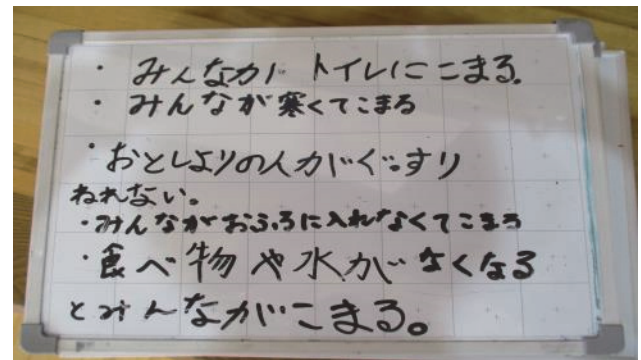 ・みんながトイレにこまる。
・みんなが寒くてこまる
・おとしよりの人がぐっすり
ねれない。
・みんながおふろに入れなくてこまる
・食べ物や水がなくなる
とみんながこまる。